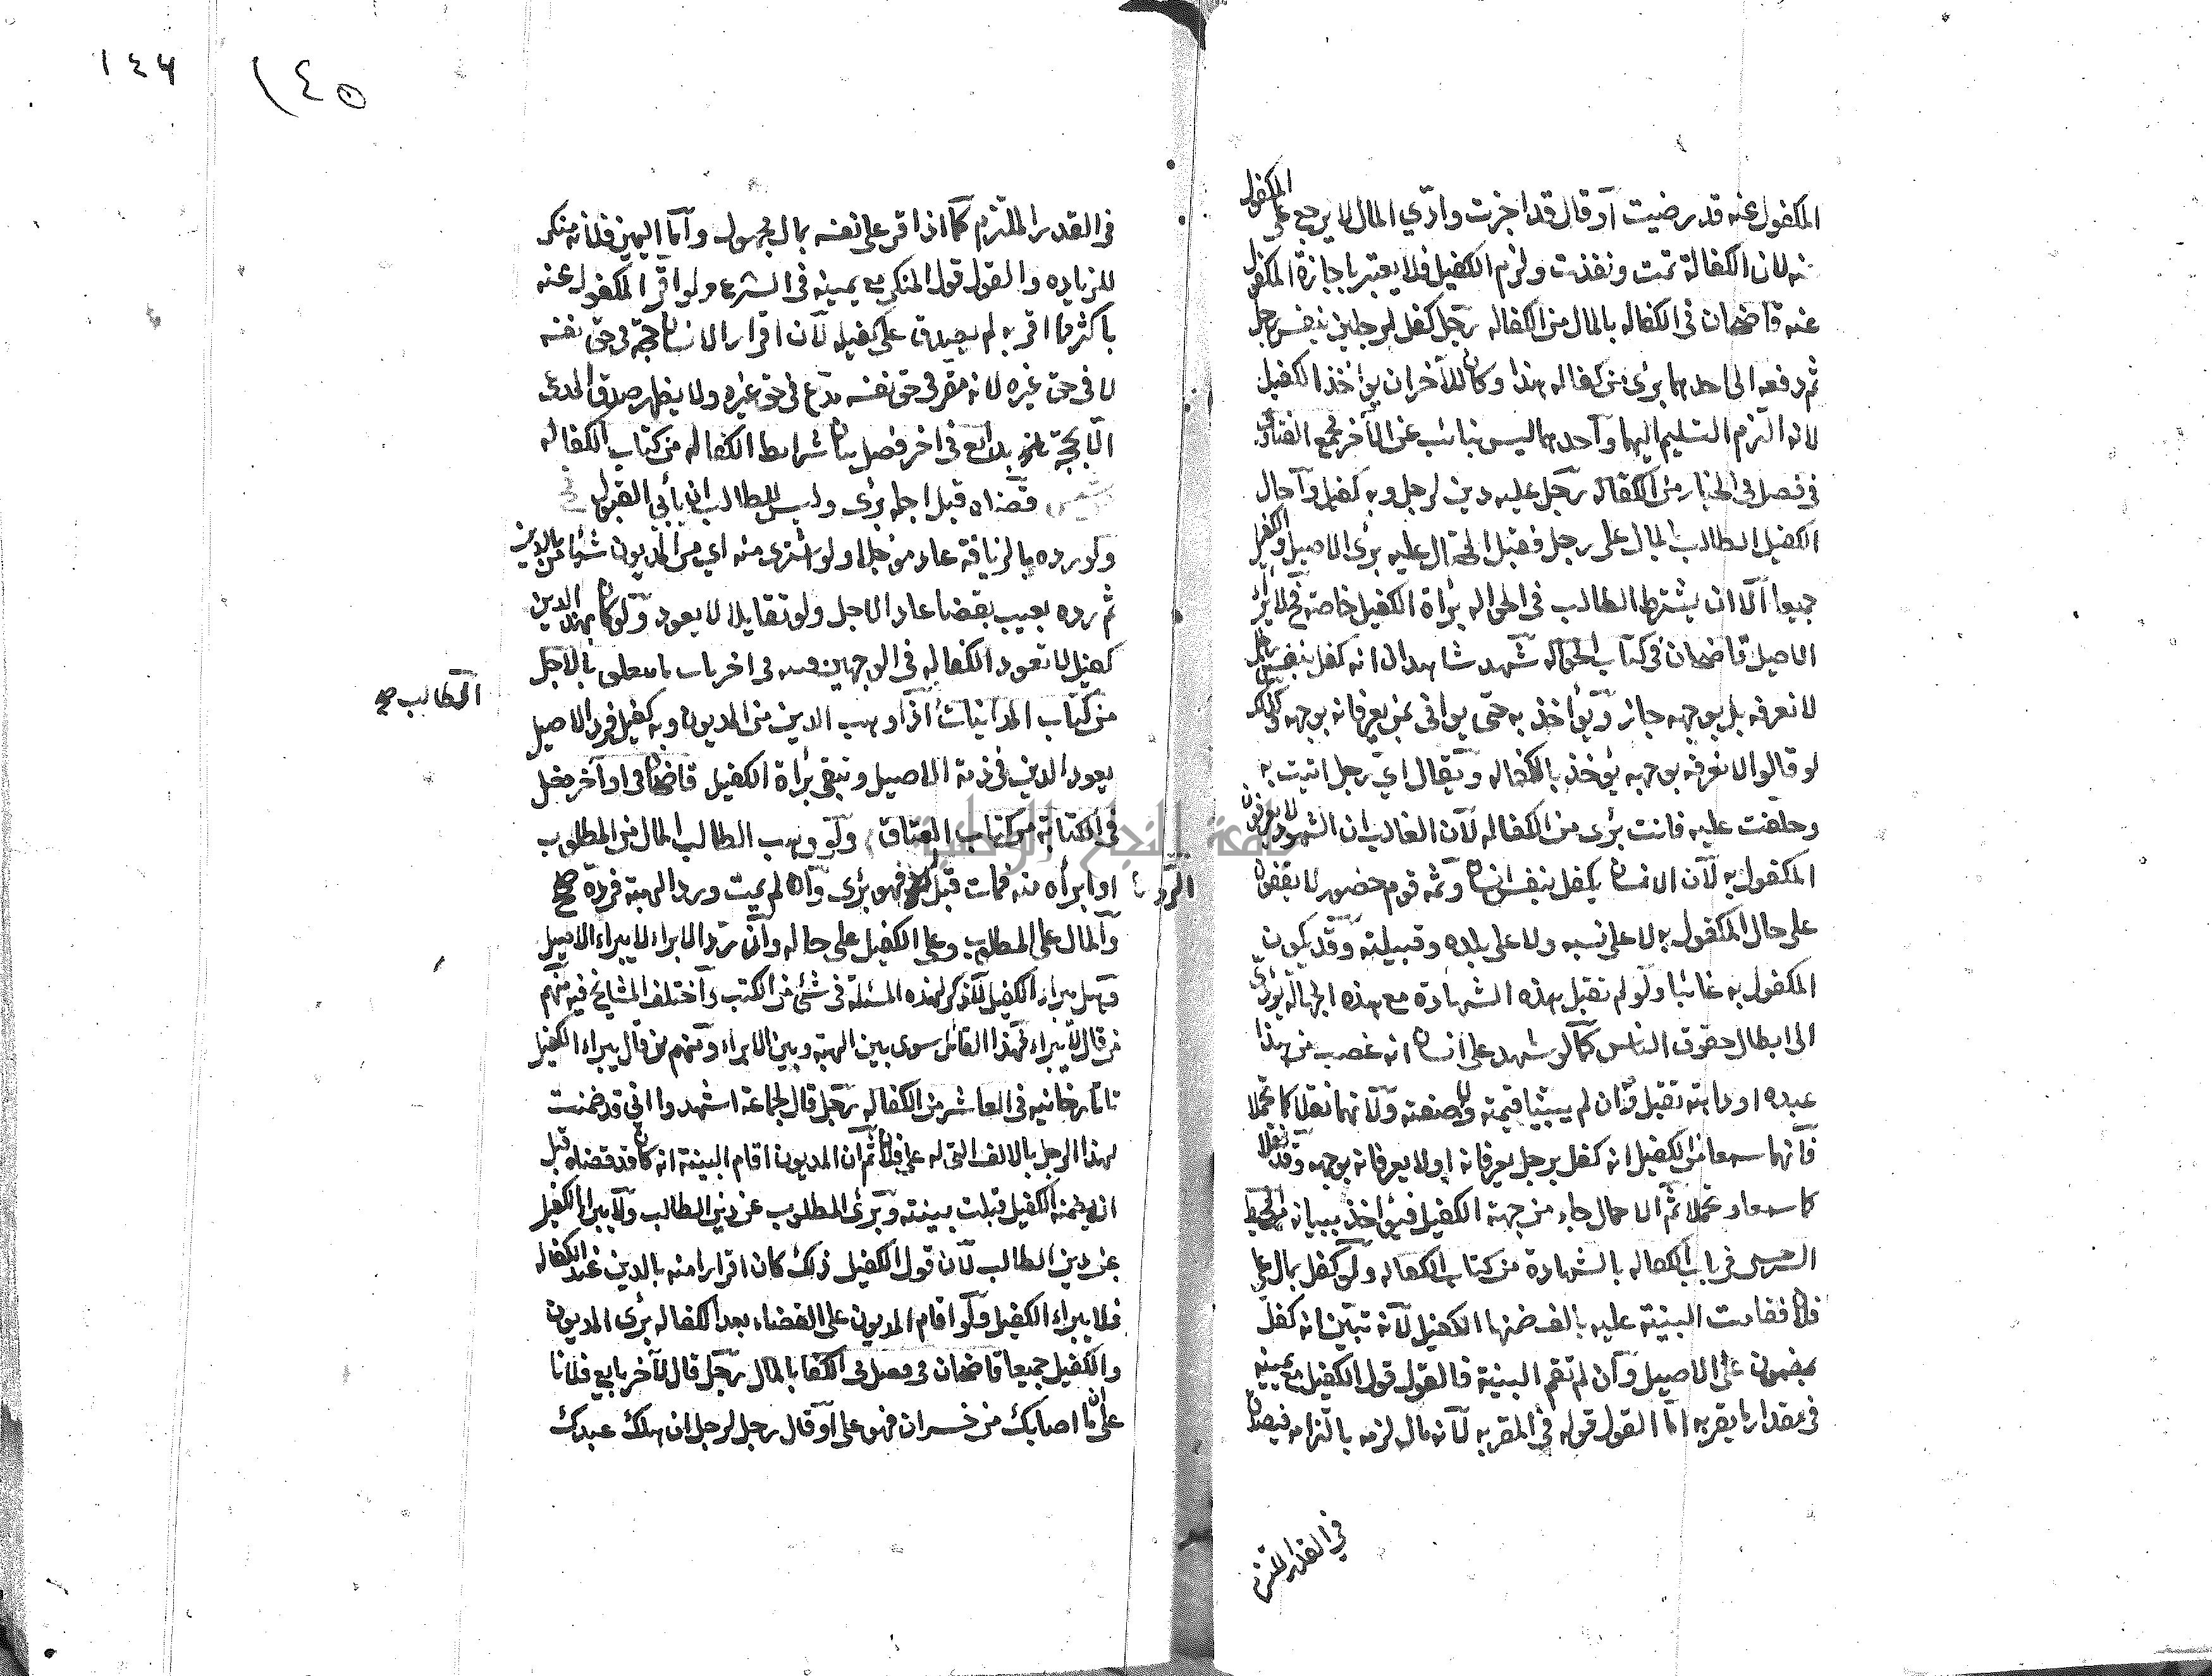 المكفول عنه قد رضيت أو قال قد اجزت وادّي المال لا يرجع على المكفول
عنه لان الكفالة تمت ونفذت ولزم الكفيل فلا يعتبر باجازة المكفول
عنه قاضخان في الكفاله بالمال من الكفاله رجل كفل لرجلين بنفس رجل
ثم دفعه الى احدهما برئ من كفاله هذا وكان للآخر ان يؤاخذ الكفيل
لانه التزم التسليم اليهما واحدهما ليس بنائب عن الآخر مجمع الفتاوى
في فصل في الخيار من الكفاله رجل عليه دين لرجل وبه كفيل وآحال
الكفيل الطالب بالمال على رجل فقبل المحتال عليه برئ الاصيل والكفيل
جميعا الا ان يشترط الطالب في الحواله براة الكفيل خاصة فح لا يبرأ
الاصيل قاضخان في كتاب الحواله شهد شاهدان انه كفل بنفس رجل
لا نعرفه بل بوجهه جاز ويؤاخذ به حتى يوافى بمن يعرفانه بوجهه وكذلك
لو قالوا لا نعرفه بوجهه يؤخذ بالكفاله ويقال اي رجل اتيت به
وحلفت عليه فانت برئ من الكفاله لان الغالب ان الشهود لا يعرفون
المكفول به لان الانسان يكفل بنفس انسان وثمه قوم حضور لا يقفون
على حال المكفول به لا على نسبه ولا على بلده وقبيلته وقد يكون
المكفول به غائبا ولو لم نقبل هذه الشهادة مع هذه الجهالة يؤدي
الى ابطال حقوق الناس كما لو شهد على انسان انه غصب من هذا
عبده او دابته تقبل وان لم يبينا قيمته ولا صنعته ولانهما نقلا كما تحملا
فانهما سمعا من الكفيل انه كفل برجل يعرفانه او لا يعرفانه بوجهه وقد نقلا
كما سمعا وتحملا ثم الاجمال جاء من جهة الكفيل فيؤاخذ ببيانه محيط
السرخسى في باب الكفاله بالشهادة من كتاب الكفاله ولو كفل بمال على
فلان فقامت البينة عليه بالف ضمنها الكفيل لانه تبين انه كفل
بمضمون على الاصيل وان لم تقم البينة فالقول قول الكفيل مع يمينه
في مقدار ما يقر به اما القول قوله في المقر به لانه مال لزمه بالتزامه فيصدق
في القدر الملتزم
١٤٦
١٤٥
في القدر الملتزم كما اذا اقر على نفسه بمال مجهول وآما اليمين فلانه منكر
للزياده والقول قول المنكر مع يمينه في الشرع ولو اقر المكفول عنه
باكثر مما اقر به لم يصدق على كفيله لان اقرار الانسان حجة في حق نفسه
لا في حق غيره لانه مقر في حق نفسه مدّع في حق غيره ولا يظهر صدق المدعى
الا بحجة بدائع في اخر فصل بيان شرايط الكفاله من كتاب الكفاله
قضاه قبل اجله برئ وليس للطالب ان يأبى القبول
ولو رده بالزيافة عاد مؤجلا ولو اشترى منه اي من المديون شيئا بالدين
ثم رده بعيب بقضا عاد الاجل ولو تقايلا لا يعود ولو كان بهذا الدين
كفيل لا تعود الكفاله في الوجهين قنيه في اخر باب ما يتعلق بالاجل
من كتاب المداينات اذا وهب الدين من المديون وبه كفيل فرد الاصيل
المطالب صح
يعود الدين في ذمة الاصيل وتبقى براة الكفيل قاضخان في اواخر فصل
في الكتابة من كتاب العتاق ولو وهب الطالب المال من المطلوب
او ابرأه منه فمات قبل الرد فهو برئ وان لم يمت ورد الهبة فرده صحيح
والمال على المطلوب وعلى الكفيل على حاله وان رد الابراء لا يبراء الاصيل
وهل يبراء الكفيل لم تذكر هذه المسئلة في شئ من الكتب واختلف المشايخ فيه منهم
من قال لا يبراء فهذا القائل سوى بين الهبة وبين الابراء ومنهم من قال يبراء الكفيل
تاتارخانيه في العاشر من الكفاله رجل قال لجماعة اشهدوا اني قد ضمنت
لهذا الرجل بالالف التي له على فلان ثم ان المديون اقام البينة انه كان قد قضاه قبل
ان يضمنه الكفيل قبلت بينته وبرئ المطلوب عن دين الطالب ولا يبرأ الكفيل
عن دين الطالب لان قول الكفيل ذلك كان اقرارا منه بالدين عند الكفاله
فلا يبراء الكفيل ولو اقام المديون على القضاء بعد الكفاله برئ المديون
والكفيل جميعا قاضخان في فصل في الكفا بالمال رجل قال لآخر بايع فلانا
على ان ما اصابك من خسران فهو على او قال رجل لرجل ان هلك عبدك
جامعة النجاح الوطنية